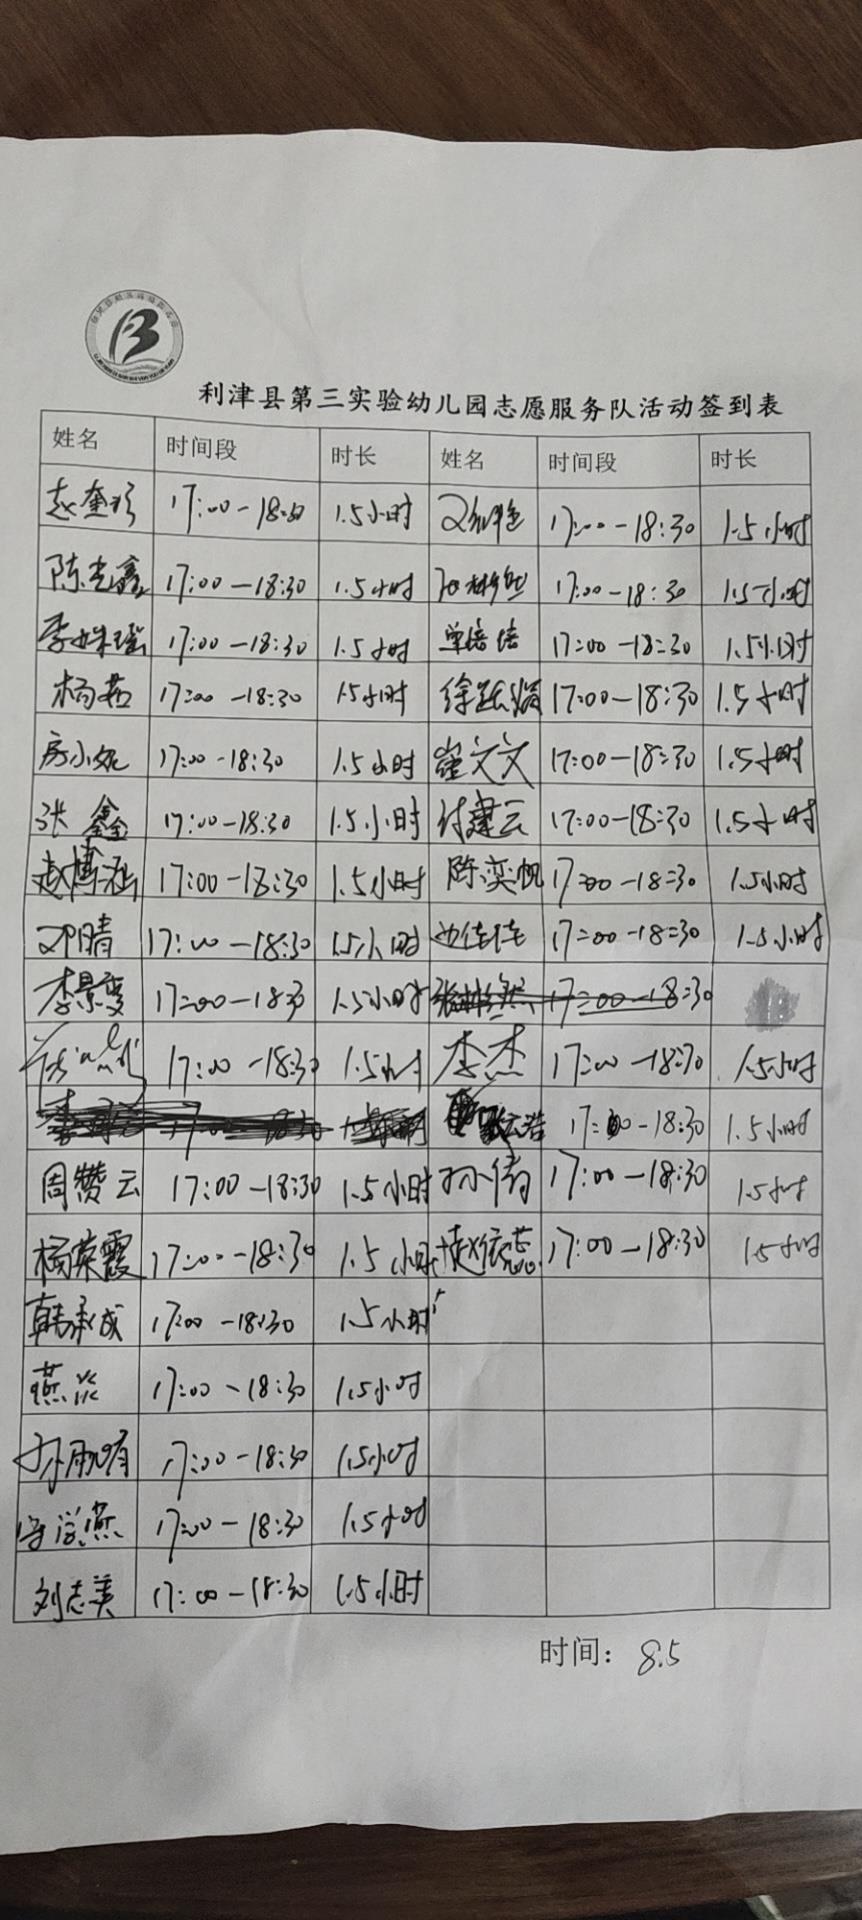 利津县第三实验幼儿园志愿服务队活动签到表
姓名 时间段 时长 姓名 时间段 时长
赵奎珍 17:00-18:30 1.5小时 17:00-18:30 1.5小时
陈光鑫 17:00-18:30 1.5小时 17:00-18:30 1.5小时
李姝瑶 17:00-18:30 1.5小时 单倍倍 17:00-18:30 1.5小时
杨茹 17:00-18:30 1.5小时 徐跃娟 17:00-18:30 1.5小时
房小妮 17:00-18:30 1.5小时 崔文文 17:00-18:30 1.5小时
张鑫 17:00-18:30 1.5小时 付建云 17:00-18:30 1.5小时
赵博涵 17:00-18:30 1.5小时 陈奕帆 17:00-18:30 1.5小时
邓晴 17:00-18:30 1.5小时 边佳佳 17:00-18:30 1.5小时
李景雯 17:00-18:30 1.5小时 17:00-18:30
17:00-18:30 1.5小时 李杰 17:00-18:30 1.5小时
17:00-18:30 1.5小时
周赞云 17:00-18:30 1.5小时 孙倩 17:00-18:30 1.5小时
杨荣霞 17:00-18:30 1.5小时 赵依蕊 17:00-18:30 1.5小时
韩承成 17:00-18:30 1.5小时
燕淡 17:00-18:30 1.5小时
17:00-18:30 1.5小时
17:00-18:30 1.5小时
刘志美 17:00-18:30 1.5小时
时间：8.5